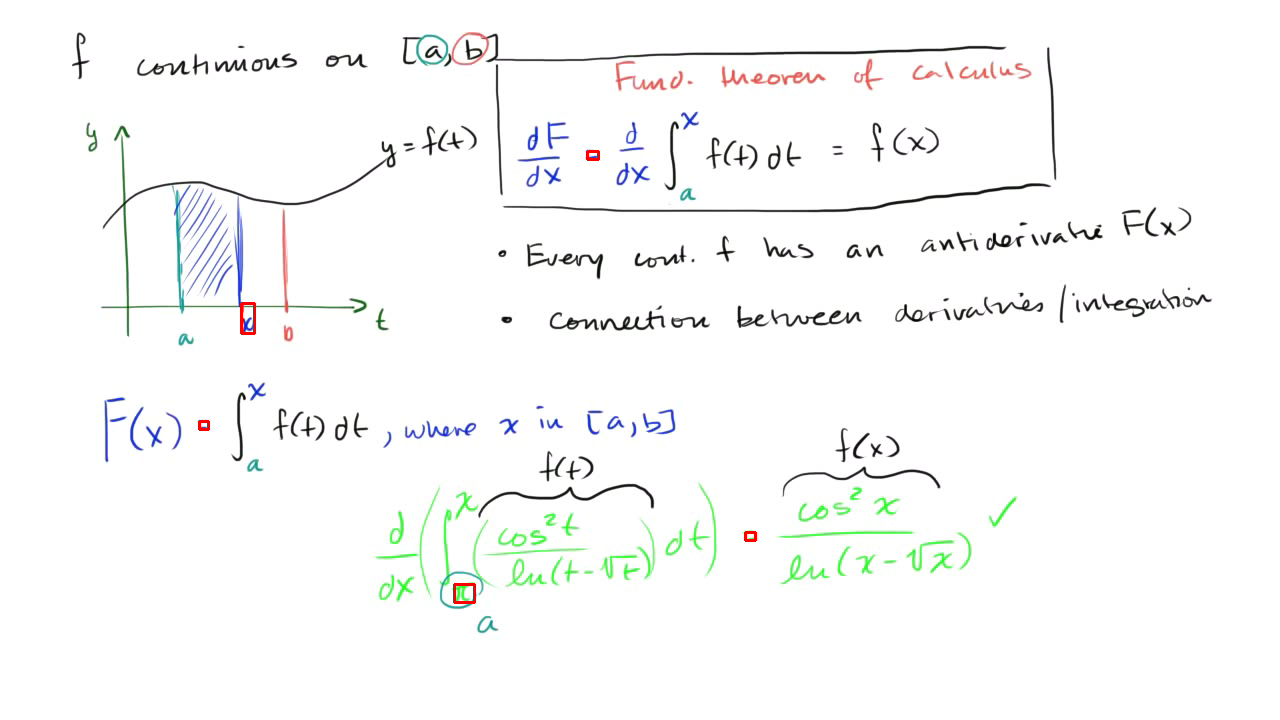 f continuous on [a,b]
Fund. theorem of calculus
dF/dx = d/dx ∫_a^x f(t) dt = f(x)
y
y = f(t)
a x b t
• Every cont. f has an antiderivative F(x)
• connection between derivatives/integration
F(x) = ∫_a^x f(t) dt, where x in [a,b]
f(t) f(x)
d/dx (∫_π^x (cos²t / ln(t-√t)) dt) = cos²x / ln(x-√x) ✓
a